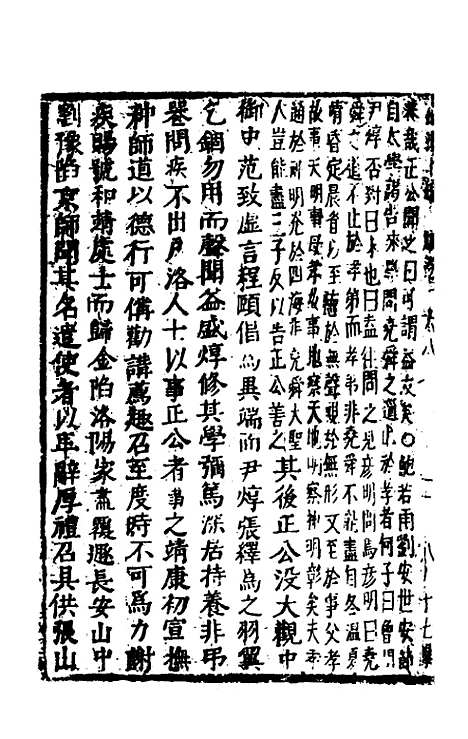 矣哉正公聞之曰可謂益友矣○鮑若雨劉安世安節
自太學謁告來學問堯舜之道止於孝者何子曰曾問
尹焞否對曰未也盍往問之見彥明問焉彥明曰堯
舜之道不止於孝弟而孝弟非堯舜不能盡自冬溫夏
凊昏定晨省以至聽於無聲視於無形又至於事父孝
故事天明事母孝故事地察天地明察神明彰矣夫孝
通於神明光於四海非堯舜大聖
人豈能盡二子反以告正公善之其後正公没大觀中
御中范致虛言程頤倡為異端而尹焞張繹為之羽翼
乞錮勿用而聲聞益盛焞修其學彌篤深居持養非弔
喪問疾不出戶洛人士以事正公者事之靖康初宣撫
种師道以德行可備勸講薦趣召至度時不可為力謝
疾賜號和靖處士而歸金陷洛陽家盡覆遯長安山中
劉豫陷京師聞其名遣使者以車辭厚禮召具供張山